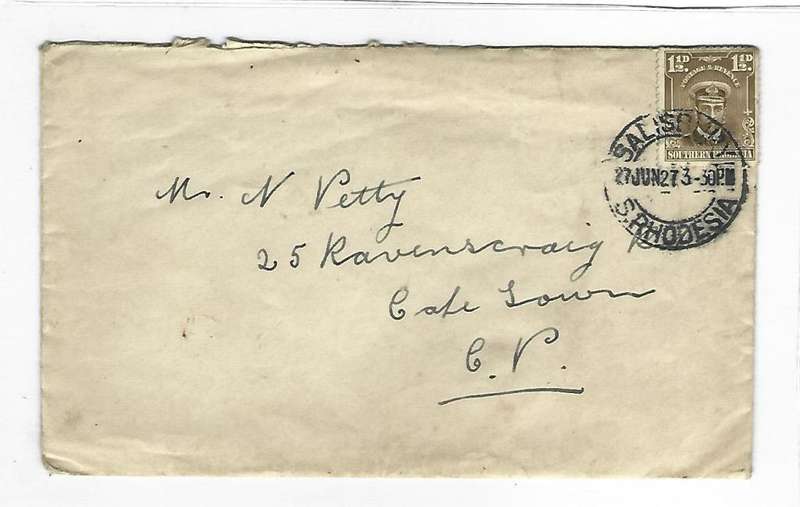 1½D. 1½D.
POSTAGE & REVENUE
SOUTHERN RHODESIA
SALISBURY
27 JUN 27 3-30PM
S. RHODESIA
Mr. N Petty
25 Ravenscraig R
Cape Town
C. P.